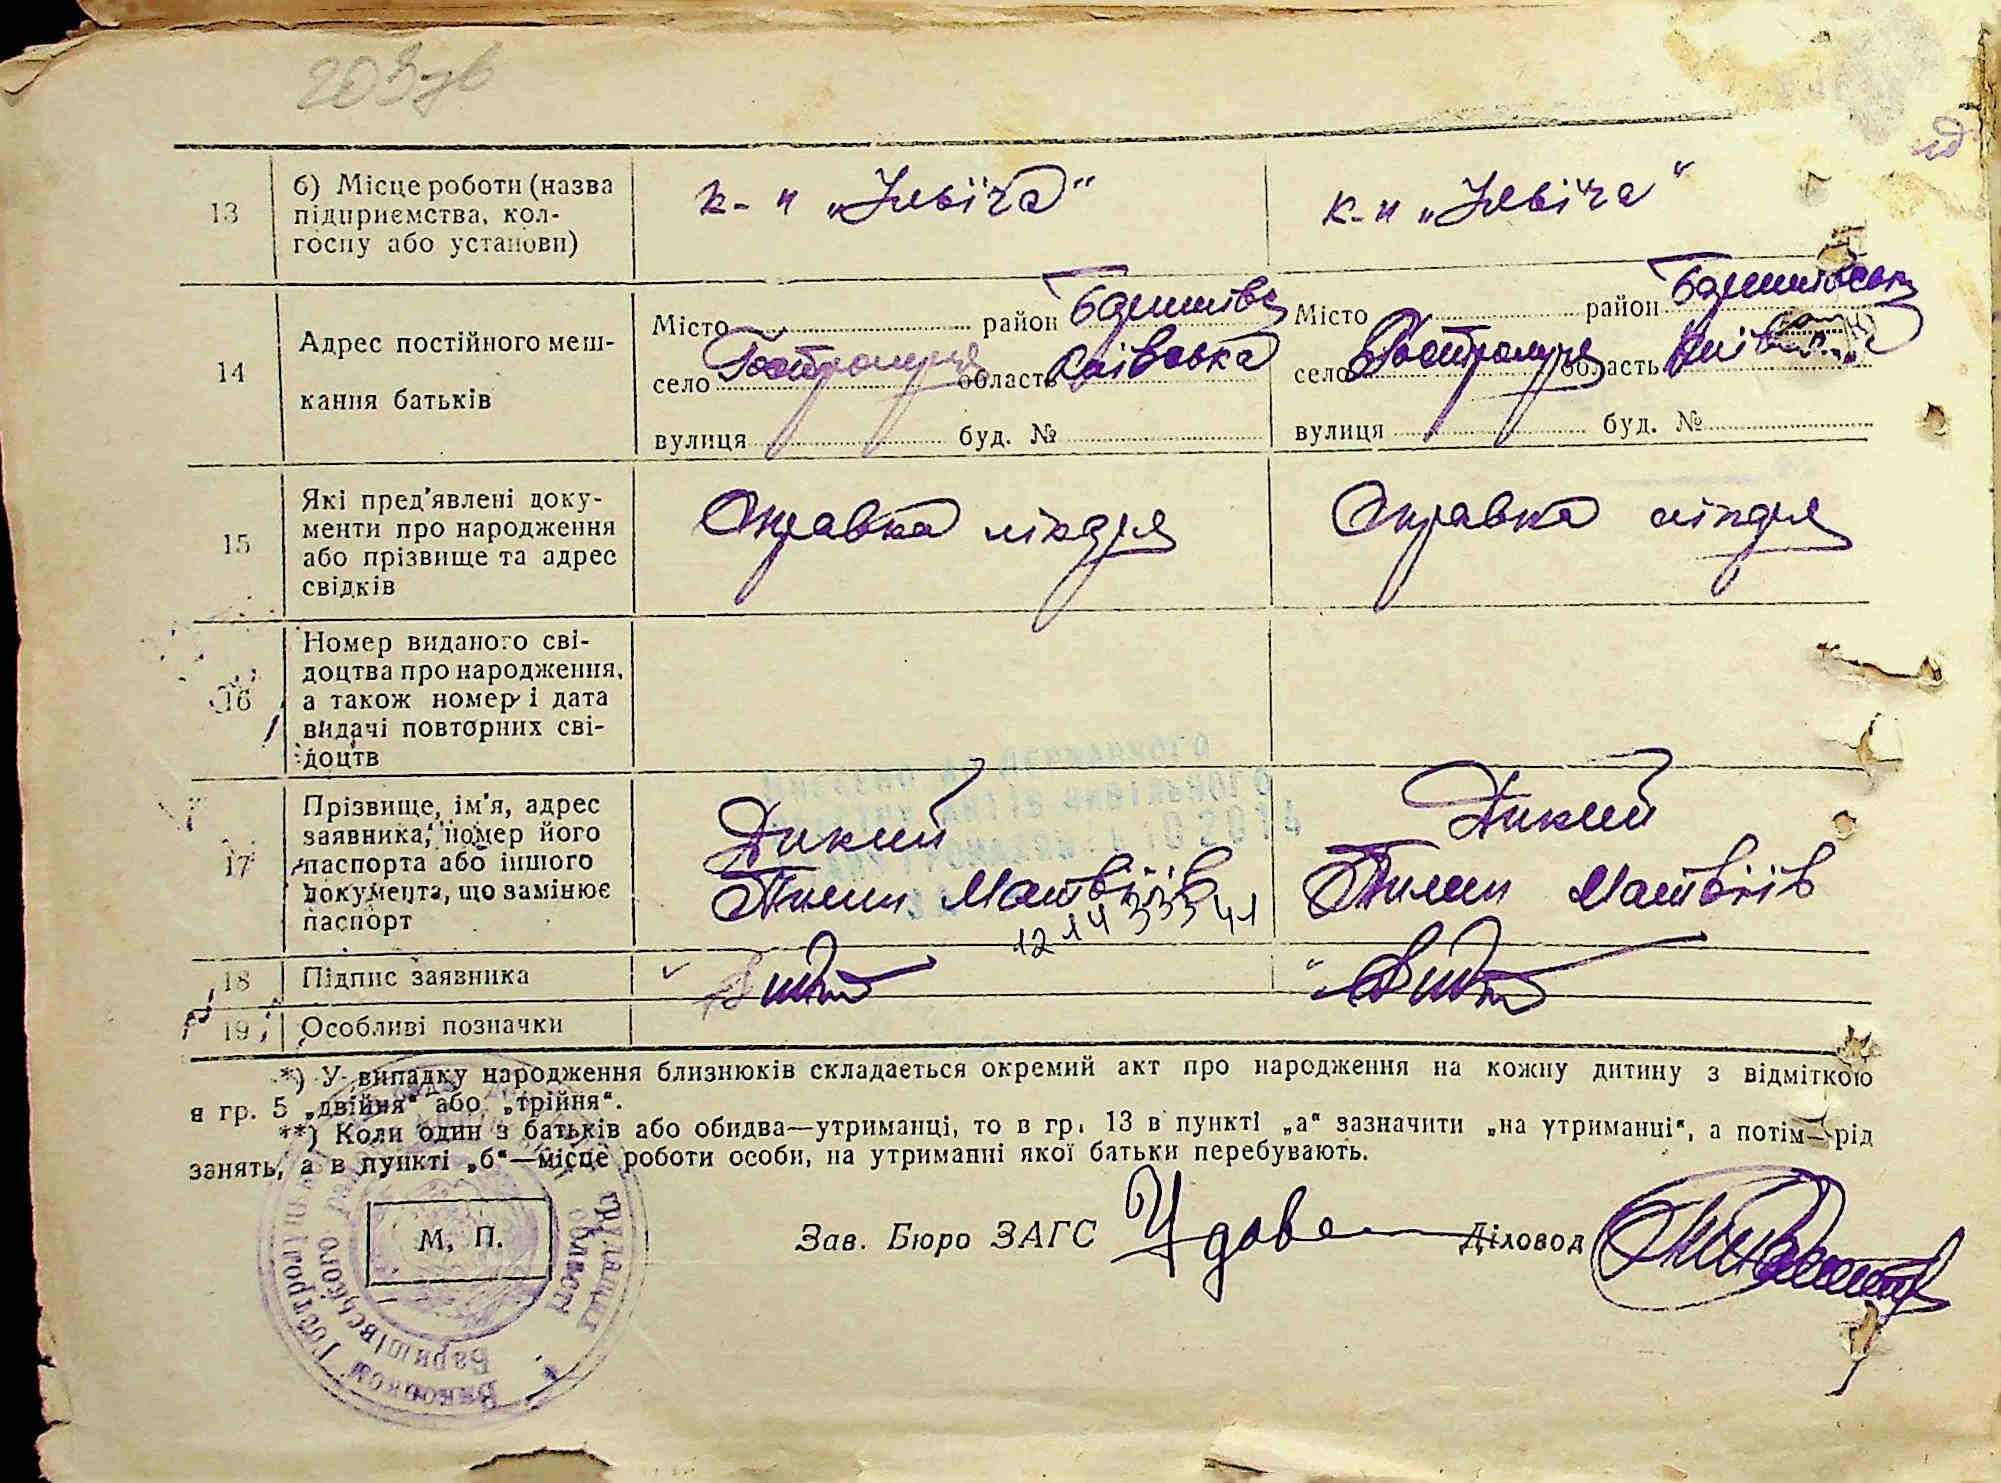 203 зв
13
б) Місце роботи (назва
підприємства, кол-
госпу або установи)
к-п „Ілліча“
к-п „Ілліча“
14
Адрес постійного меш-
кання батьків
Місто район Баришівс
село область Київська
вулиця буд. №
Місто район Баришівськ
село область Київ
вулиця буд. №
15
Які пред'явлені доку-
менти про народження
або прізвище та адрес
свідків
Справка лікаря
Справка лікаря
16
Номер виданого сві-
доцтва про народження,
а також номер і дата
видачі повторних сві-
доцтв
17
Прізвище, ім'я, адрес
заявника, номер його
паспорта або іншого
документа, що замінює
паспорт
Дикий
Пилип Матвіїв
Дикий
Пилип Матвіїв
18
Підпис заявника
19
Особливі позначки
*) У випадку народження близнюків складається окремий акт про народження на кожну дитину з відміткою
в гр. 5 „двійня“ або „трійня“.
**) Коли один з батьків або обидва—утриманці, то в гр. 13 в пункті „а“ зазначити „на утриманні“, а потім—рід
занять, а в пункті „б“—місце роботи особи, на утриманні якої батьки перебувають.
М. П.
Зав. Бюро ЗАГС Діловод